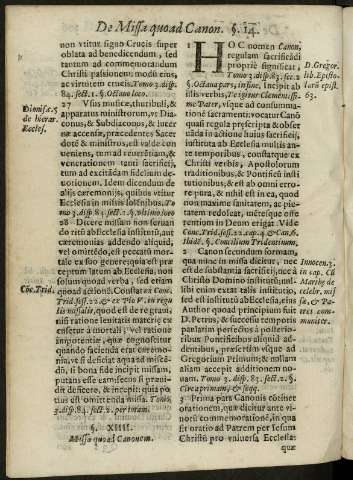 De Missa quoad Canon. §. 14.
non vtitur signo Crucis super
oblata ad benedicendum, sed
tantum ad commemorandum
Christi passionem: modũ eius,
ac virtutem crucis, Tomo 3. disp.
84. sect. 1. §. Octauo loco.
27 Vsus musicæ, thuribuli, &
apparatus ministrorum, vt Dia-
conus, & Subdiaconus, & lucer
næ accensæ, præcedentes Sacer
dotem ministros, est valde con
ueniens, tum ad reuerẽtiam, &
venerationem tanti sacrificij,
tum ad excitãdam fidelium de-
uotionem. Idem dicendum de
alijs cæremonijs, quibus vtitur
Ecclesia in missis solẽnibus, To
mo 3. disp. 84. sect. 2. §. vltimo loco
28 Dicere missam non seruan
do ritũ ab Ecclesia institutũ, aut
cæremonias addendo aliquid,
vel omittẽdo, est peccatũ mor-
tale ex suo genere: quia est præ
ceptum latum ab Ecclesia, non
solum quoad verba, sed etiam
quoad actiones. Constat ex Conc.
Trid. sess. 22. & ex Pio V. in regu
lis missalis, quod est de re graui,
nisi ratione leuitatis materię ex
cusetur à mortali; vel ratione
ineptitudinis, quæ cognoscitur
quando facienda erat ceremo-
nia, vt si deficiat aqua id misce-
dũ, si bona fide incipit missam,
putans esse eam, sed si prævi-
dit deficere, & incepit: quia po
tius est omittenda missa. Tomo
3. disp. 84. sect. 2. per totam.
§. XIIII.
Missa quoad Canonem.
Dionisæ. 5
de hierar.
Eccles.
Cõc. Trid.
1 HOC nomen Canon,
regulam sacrificãdi
proprie significat,
Tomo 3. disp. 83. sect. 2
§. Octaua pars, in fine, Incipit ab
illis verbis, Te igitur Clementissi-
me Pater, vsque ad consumma-
tionem sacramenti: vocatur Canõ
quasi regula præscripta & obser
uãda in actione huius sacrificij,
instituta ab Ecclesia multis an-
te temporibus, constatque ex
Christi verbis, Apostolorum
traditionibus, & Pontificũ insti
tutionibus, & est ab omni erro-
re pura, & nihil est in ea, quod
non maxime sanitatem, ac pie-
tatem redoleat, mentesque offe
rentium in Deum erigat. Vide
Conc. Trid. sess. 22. cap. 4. & Can. 6.
ibidẽ §. Concilium Tridentinum.
2 Canonis secundum formam,
qua nunc in missa dicitur, nec
est de substantia sacrificij, nec à
Christo Domino institutũ: nul-
lum enim extat talis institutio,
sed est institutũ ab Ecclesia, eius
que aliquod principium fuit à
D. Petro, & successu temporis
paulatim perfectus à posterio-
ribus Pontificibus aliquid ad-
dentibus, præsertim vsque ad
Gregorium Primum; & missam
aliam accepit additionem no-
tam. Tomo 3. disp. 83. sect. 2. §.
Circa primam, & seqq.
3 Prima pars Canonis cõtinet
orationem, quæ dicitur ante vi-
uorũ commemorationẽ, in qua
fit oratio ad Patrem per Iesum
Christũ pro vniuersa Ecclesia:
quæ
D. Gregor.
lib. Episto-
larũ epist.
63.
Innocen. 3
in cap. Cũ
Marthę de
celebr. mis
sæ, & Pa-
tres com-
muniter.